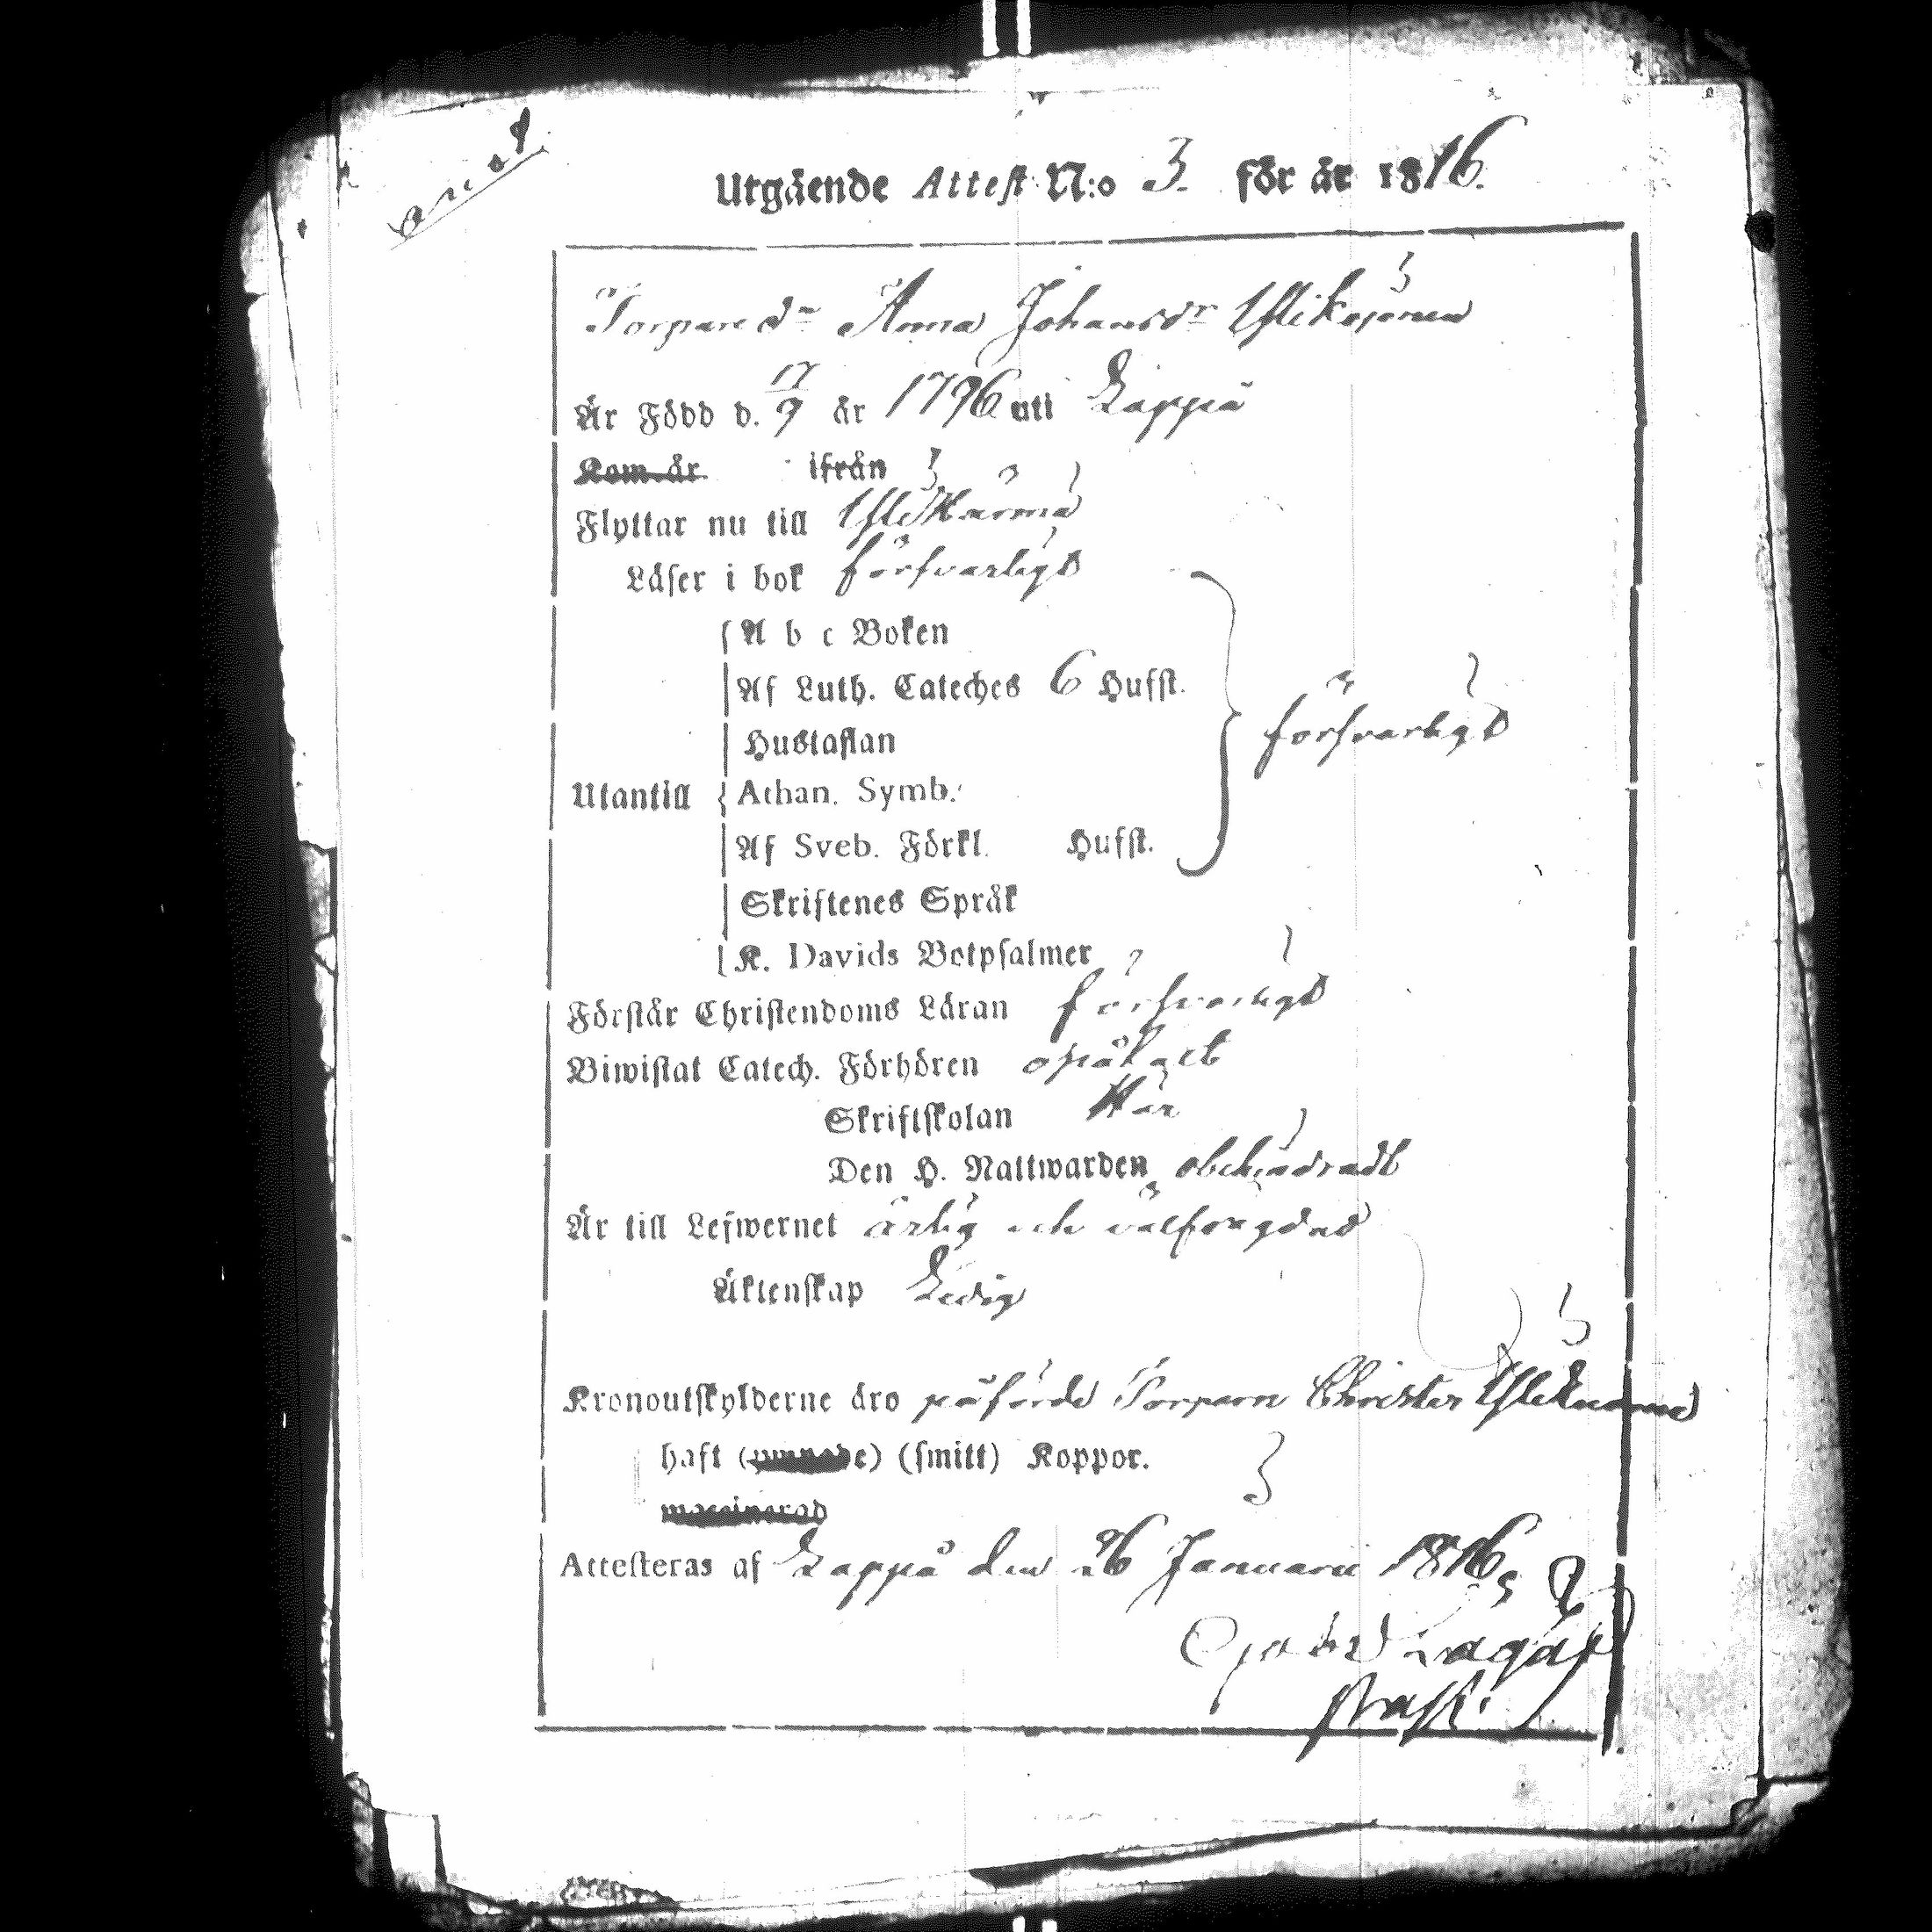 Utgående Attest N:o 3. för år 1816.
Torpare dr Anna Johansdr
Är Född d. 17/9 år 1796 uti Lappå
Kom år ifrån
Flyttar nu till
Läser i bok försvarligt
A b c Boken
Af Luth. Cateches 6 Hufst.
Hustaflan
försvarligt
Utantill
Athan. Symb.
Af Sveb. Förkl. Hufst.
Skriftenes Språk
K. Davids Botpsalmer
Förstår Christendoms Läran försvarligt
Biwistat Catech. Förhören opåtalt
Skriftskolan Här
Den H. Nattwarden obehindradt
Är till Lefwernet ärlig och välfrägdad
Äktenskap Ledig
Kronoutskylderne äro påförde Torparn Christer
haft (smitt) Koppor.
Attesteras af Lappå den 26 Januarii 1816,